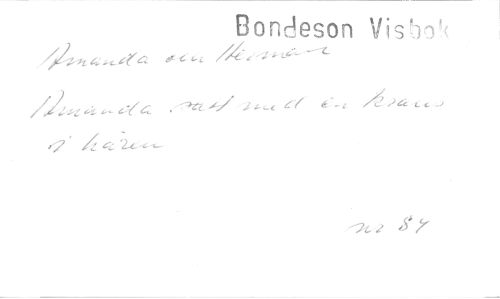 Bondeson Visbok
Amanda och Herman
Amanda satt med en krans
i håren
nr 84